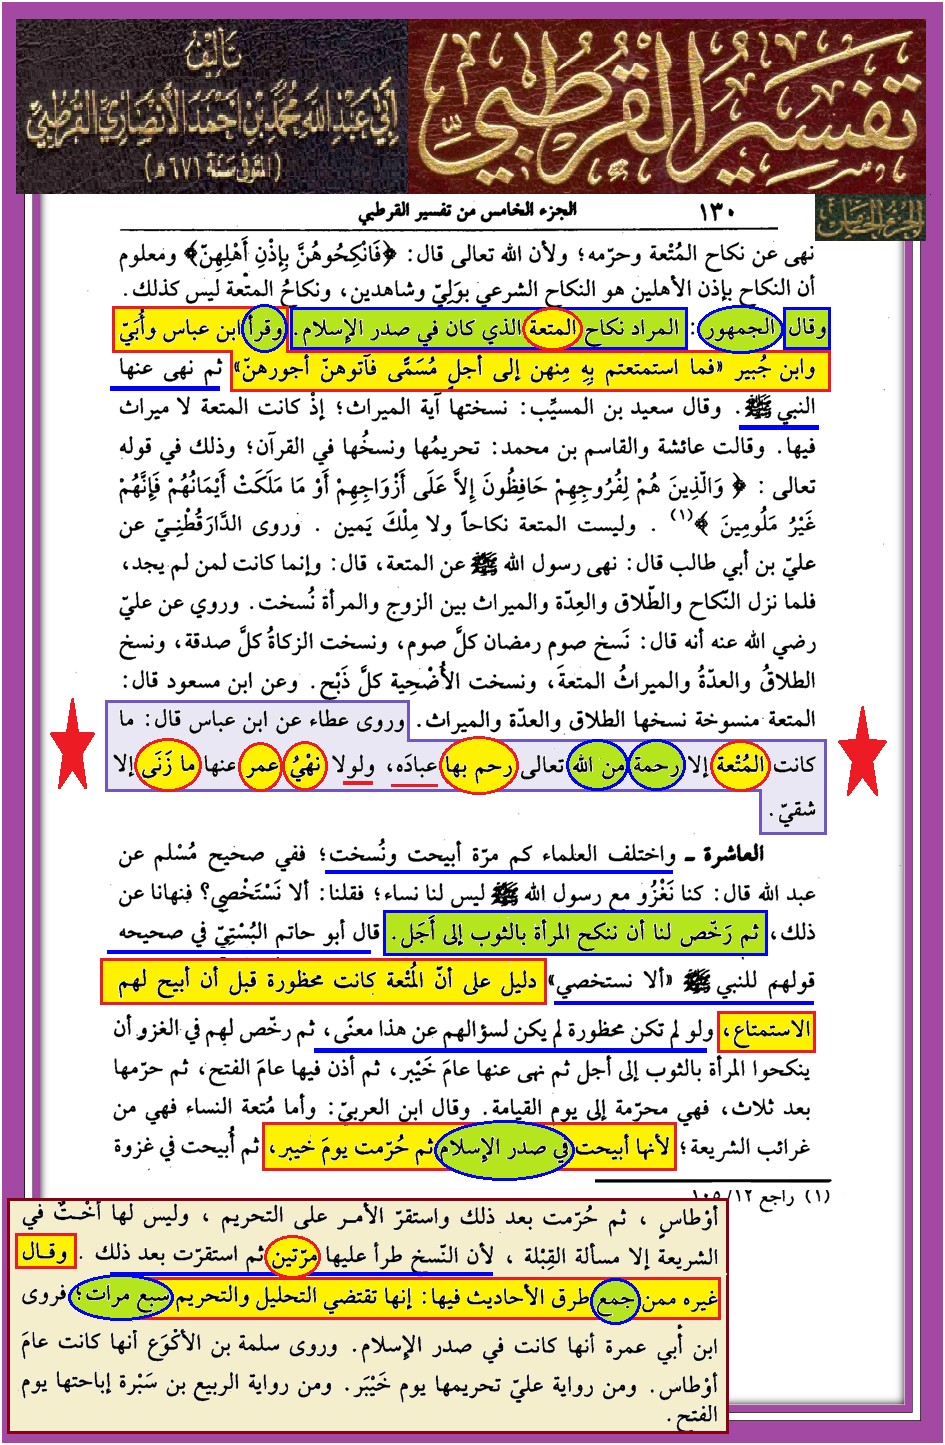 تفسير القرطبي
تأليف
أبي عبد الله محمد بن أحمد الأنصاري القرطبي
(المتوفى سنة ٦٧١ هـ)
١٣٠
الجزء الخامس من تفسير القرطبي
نهى عن نكاح المُتْعة وحرّمه؛ ولأن الله تعالى قال: ﴿فَانْكِحُوهُنَّ بِإِذْنِ أَهْلِهِنّ﴾ ومعلوم
أن النكاح بإذن الأهلين هو النكاح الشرعي بوَليّ وشاهدين، ونكاحُ المتْعة ليس كذلك.
وقال الجمهور: المراد نكاح المتعة الذي كان في صدر الإسلام. وقرأ ابن عباس وأُبَيّ
وابن جُبير «فما استمتعتم بِهِ مِنهن إلى أجلٍ مُسَمًّى فآتوهنّ أجورهنّ» ثم نهى عنها
النبي ﷺ. وقال سعيد بن المسيِّب: نسختها آية الميراث؛ إذْ كانت المتعة لا ميراث
فيها. وقالت عائشة والقاسم بن محمد: تحريمُها ونسخُها في القرآن؛ وذلك في قوله
تعالى: ﴿ وَالَّذِينَ هُمْ لِفُرُوجِهِمْ حَافِظُونَ إِلاَّ عَلَى أَزْوَاجِهِمْ أَوْ مَا مَلَكَتْ أَيْمَانُهُمْ فَإِنَّهُمْ
غَيْرُ مَلُومِينَ ﴾(١) . وليست المتعة نكاحاً ولا مِلْكَ يَمين . وروى الدَّارَقُطْنِيّ عن
عليّ بن أبي طالب قال: نهى رسول الله ﷺ عن المتعة، قال: وإنما كانت لمن لم يجد،
فلما نزل النّكاح والطّلاق والعِدّة والميراث بين الزوج والمرأة نُسخت. وروي عن عليّ
رضي الله عنه أنه قال: نَسخ صوم رمضان كلَّ صوم، ونسخت الزكاةُ كلَّ صدقة، ونسخ
الطلاقُ والعدّةُ والميراثُ المتعةَ، ونسخت الأُضْحِية كلَّ ذَبْح. وعن ابن مسعود قال:
المتعة منسوخة نسخها الطلاق والعدّة والميراث. وروى عطاء عن ابن عباس قال: ما
كانت المُتْعة إلا رحمة من الله تعالى رحم بها عبادَه، ولولا نهْيُ عمر عنها ما زَنَى إلا
شقيّ.
العاشرة ـ واختلف العلماء كم مرّة أبيحت ونُسخت؛ ففي صحيح مُسْلم عن
عبد الله قال: كنا نَغْزُو مع رسول الله ﷺ ليس لنا نساء؛ فقلنا: ألا نَسْتَخْصِي؟ فنهانا عن
ذلك، ثم رَخّص لنا أن ننكح المرأة بالثوب إلى أَجَل. قال أبو حاتم البُسْتِيّ في صحيحه
قولهم للنبي ﷺ «ألا نستخصي» دليل على أنّ المُتْعة كانت محظورة قبل أن أبيح لهم
الاستمتاع، ولو لم تكن محظورة لم يكن لسؤالهم عن هذا معنًى، ثم رخّص لهم في الغزو أن
ينكحوا المرأة بالثوب إلى أجل ثم نهى عنها عامَ خَيْبر، ثم أذن فيها عامَ الفتح، ثم حرّمها
بعد ثلاث، فهي محرّمة إلى يوم القيامة. وقال ابن العربيّ: وأما مُتعة النساء فهي من
غرائب الشريعة؛ لأنها أبيحت في صدر الإسلام ثم حُرّمت يومَ خيبر، ثم أُبيحت في غزوة
(١) راجع ١٢/ ١٠٥
أوْطاسٍ ، ثم حُرّمت بعد ذلك واستقرّ الأمر على التحريم ، وليس لها أُخْتٌ في
الشريعة إلا مسألة القِبْلة ، لأن النّسخ طرأ عليها مرّتين ثم استقرّت بعد ذلك . وقال
غيره ممن جمع طرق الأحاديث فيها: إنها تقتضي التحليل والتحريم سبع مرات؛ فروى
ابن أبي عمرة أنها كانت في صدر الإسلام. وروى سلمة بن الأكْوَع أنها كانت عامَ
أوْطاس. ومن رواية عليّ تحريمها يوم خَيْبَر. ومن رواية الربيع بن سَبْرة إباحتها يوم
الفتح.